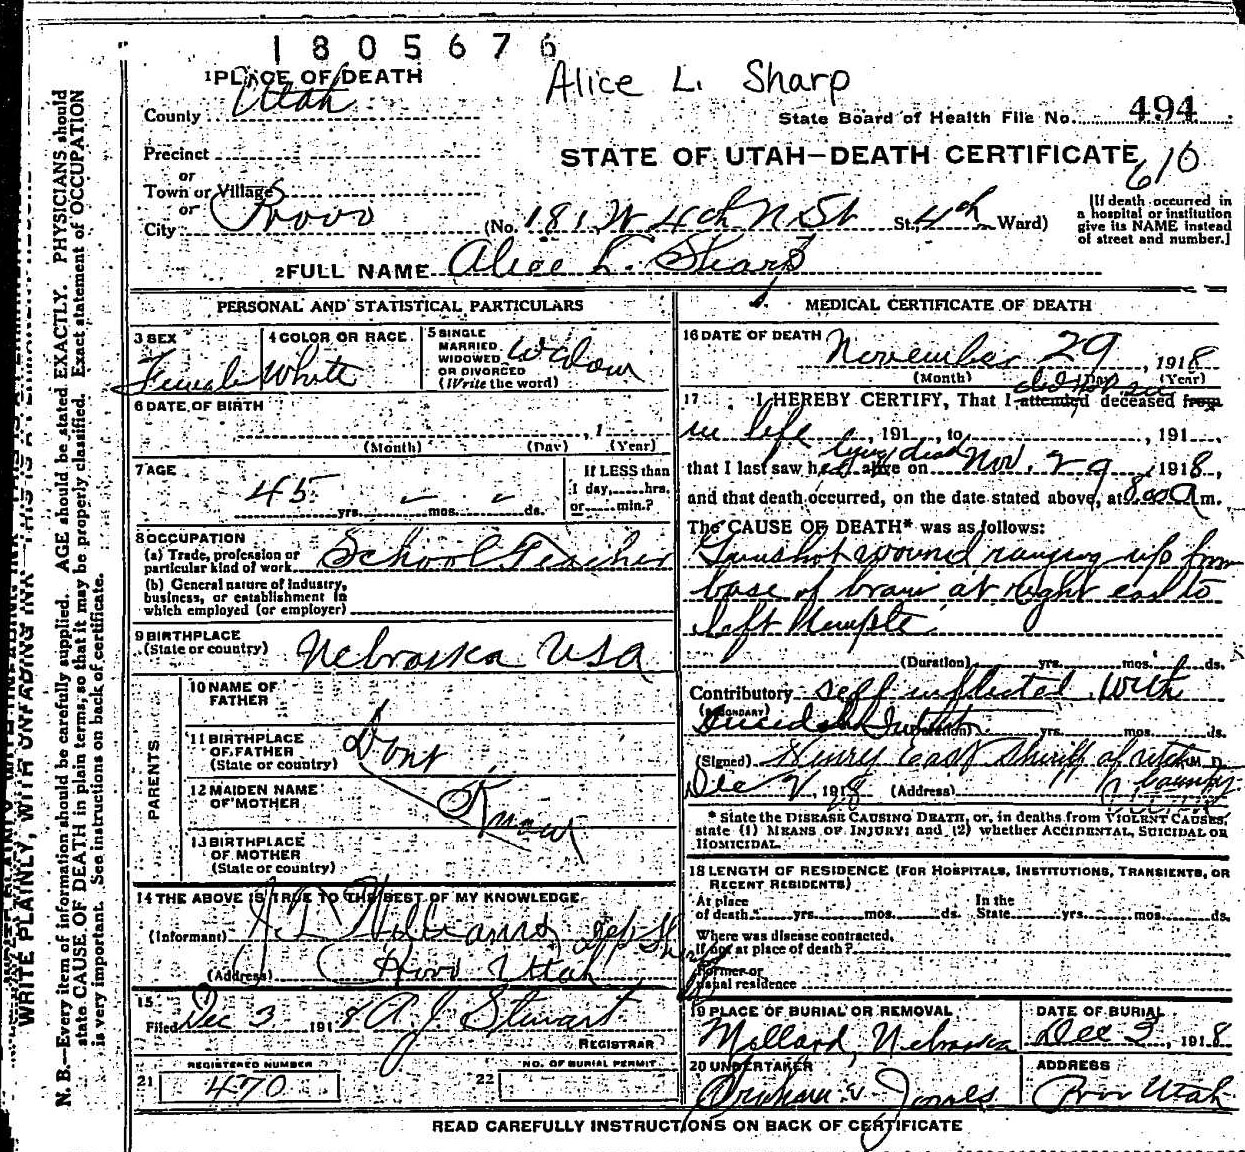 1805676
Alice L. Sharp
1 PLACE OF DEATH
County Utah
State Board of Health File No. 494
Precinct
or
Town or Village
or
City Provo
STATE OF UTAH—DEATH CERTIFICATE
610
(No. 181 W 4th N St St., 4th Ward)
[If death occurred in
a hospital or institution
give its NAME instead
of street and number.]
2 FULL NAME Alice L. Sharp
PERSONAL AND STATISTICAL PARTICULARS
3 SEX
Female
4 COLOR OR RACE
White
5 SINGLE
MARRIED
WIDOWED
OR DIVORCED
(Write the word)
Widow
6 DATE OF BIRTH
, 1
(Month) (Day) (Year)
7 AGE
45 yrs. – mos. – ds.
If LESS than
1 day, hrs.
or min.?
8 OCCUPATION
(a) Trade, profession or
particular kind of work School Teacher
(b) General nature of industry,
business, or establishment in
which employed (or employer)
9 BIRTHPLACE
(State or country) Nebraska USA
PARENTS
10 NAME OF
FATHER
11 BIRTHPLACE
OF FATHER
(State or country)
12 MAIDEN NAME
OF MOTHER
13 BIRTHPLACE
OF MOTHER
(State or country)
Dont
Know
14 THE ABOVE IS TRUE TO THE BEST OF MY KNOWLEDGE
(Informant) Williams dep Sheriff
(Address) Provo Utah
15
Filed Dec 3 1918 A. J. Stewart
REGISTRAR
REGISTERED NUMBER
21 470
NO. OF BURIAL PERMIT
22
MEDICAL CERTIFICATE OF DEATH
16 DATE OF DEATH
November 29, 1918
(Month) (Day) (Year)
17 I HEREBY CERTIFY, That I attended did not see deceased from
in life, 191 , to , 191 ,
that I last saw h er alive lying dead on Nov. 29, 1918,
and that death occurred, on the date stated above, at 8.00 A m.
The CAUSE OF DEATH* was as follows:
Gunshot wound ranging up from
base of brain at right ear to
left temple
(Duration) yrs. mos. ds.
Contributory self inflicted with
(SECONDARY)
Suicidal Intent (Duration) yrs. mos. ds.
(Signed) Henry East Sheriff of Utah M. D.
County
Dec 2, 1918 (Address)
* State the DISEASE CAUSING DEATH, or, in deaths from VIOLENT CAUSES,
state (1) MEANS OF INJURY; and (2) whether ACCIDENTAL, SUICIDAL OR
HOMICIDAL.
18 LENGTH OF RESIDENCE (FOR HOSPITALS, INSTITUTIONS, TRANSIENTS, OR
RECENT RESIDENTS)
At place
of death yrs. mos. ds.
In the
State yrs. mos. ds.
Where was disease contracted,
if not at place of death?
Former or
usual residence
19 PLACE OF BURIAL OR REMOVAL
Millard, Nebraska
DATE OF BURIAL
Dec 3, 1918
20 UNDERTAKER
Jones
ADDRESS
Provo Utah
READ CAREFULLY INSTRUCTIONS ON BACK OF CERTIFICATE
WRITE PLAINLY, WITH UNFADING INK—THIS IS A PERMANENT RECORD
N. B.—Every item of information should be carefully supplied. AGE should be stated EXACTLY. PHYSICIANS should
state CAUSE OF DEATH in plain terms, so that it may be properly classified. Exact statement of OCCUPATION
is very important. See instructions on back of certificate.